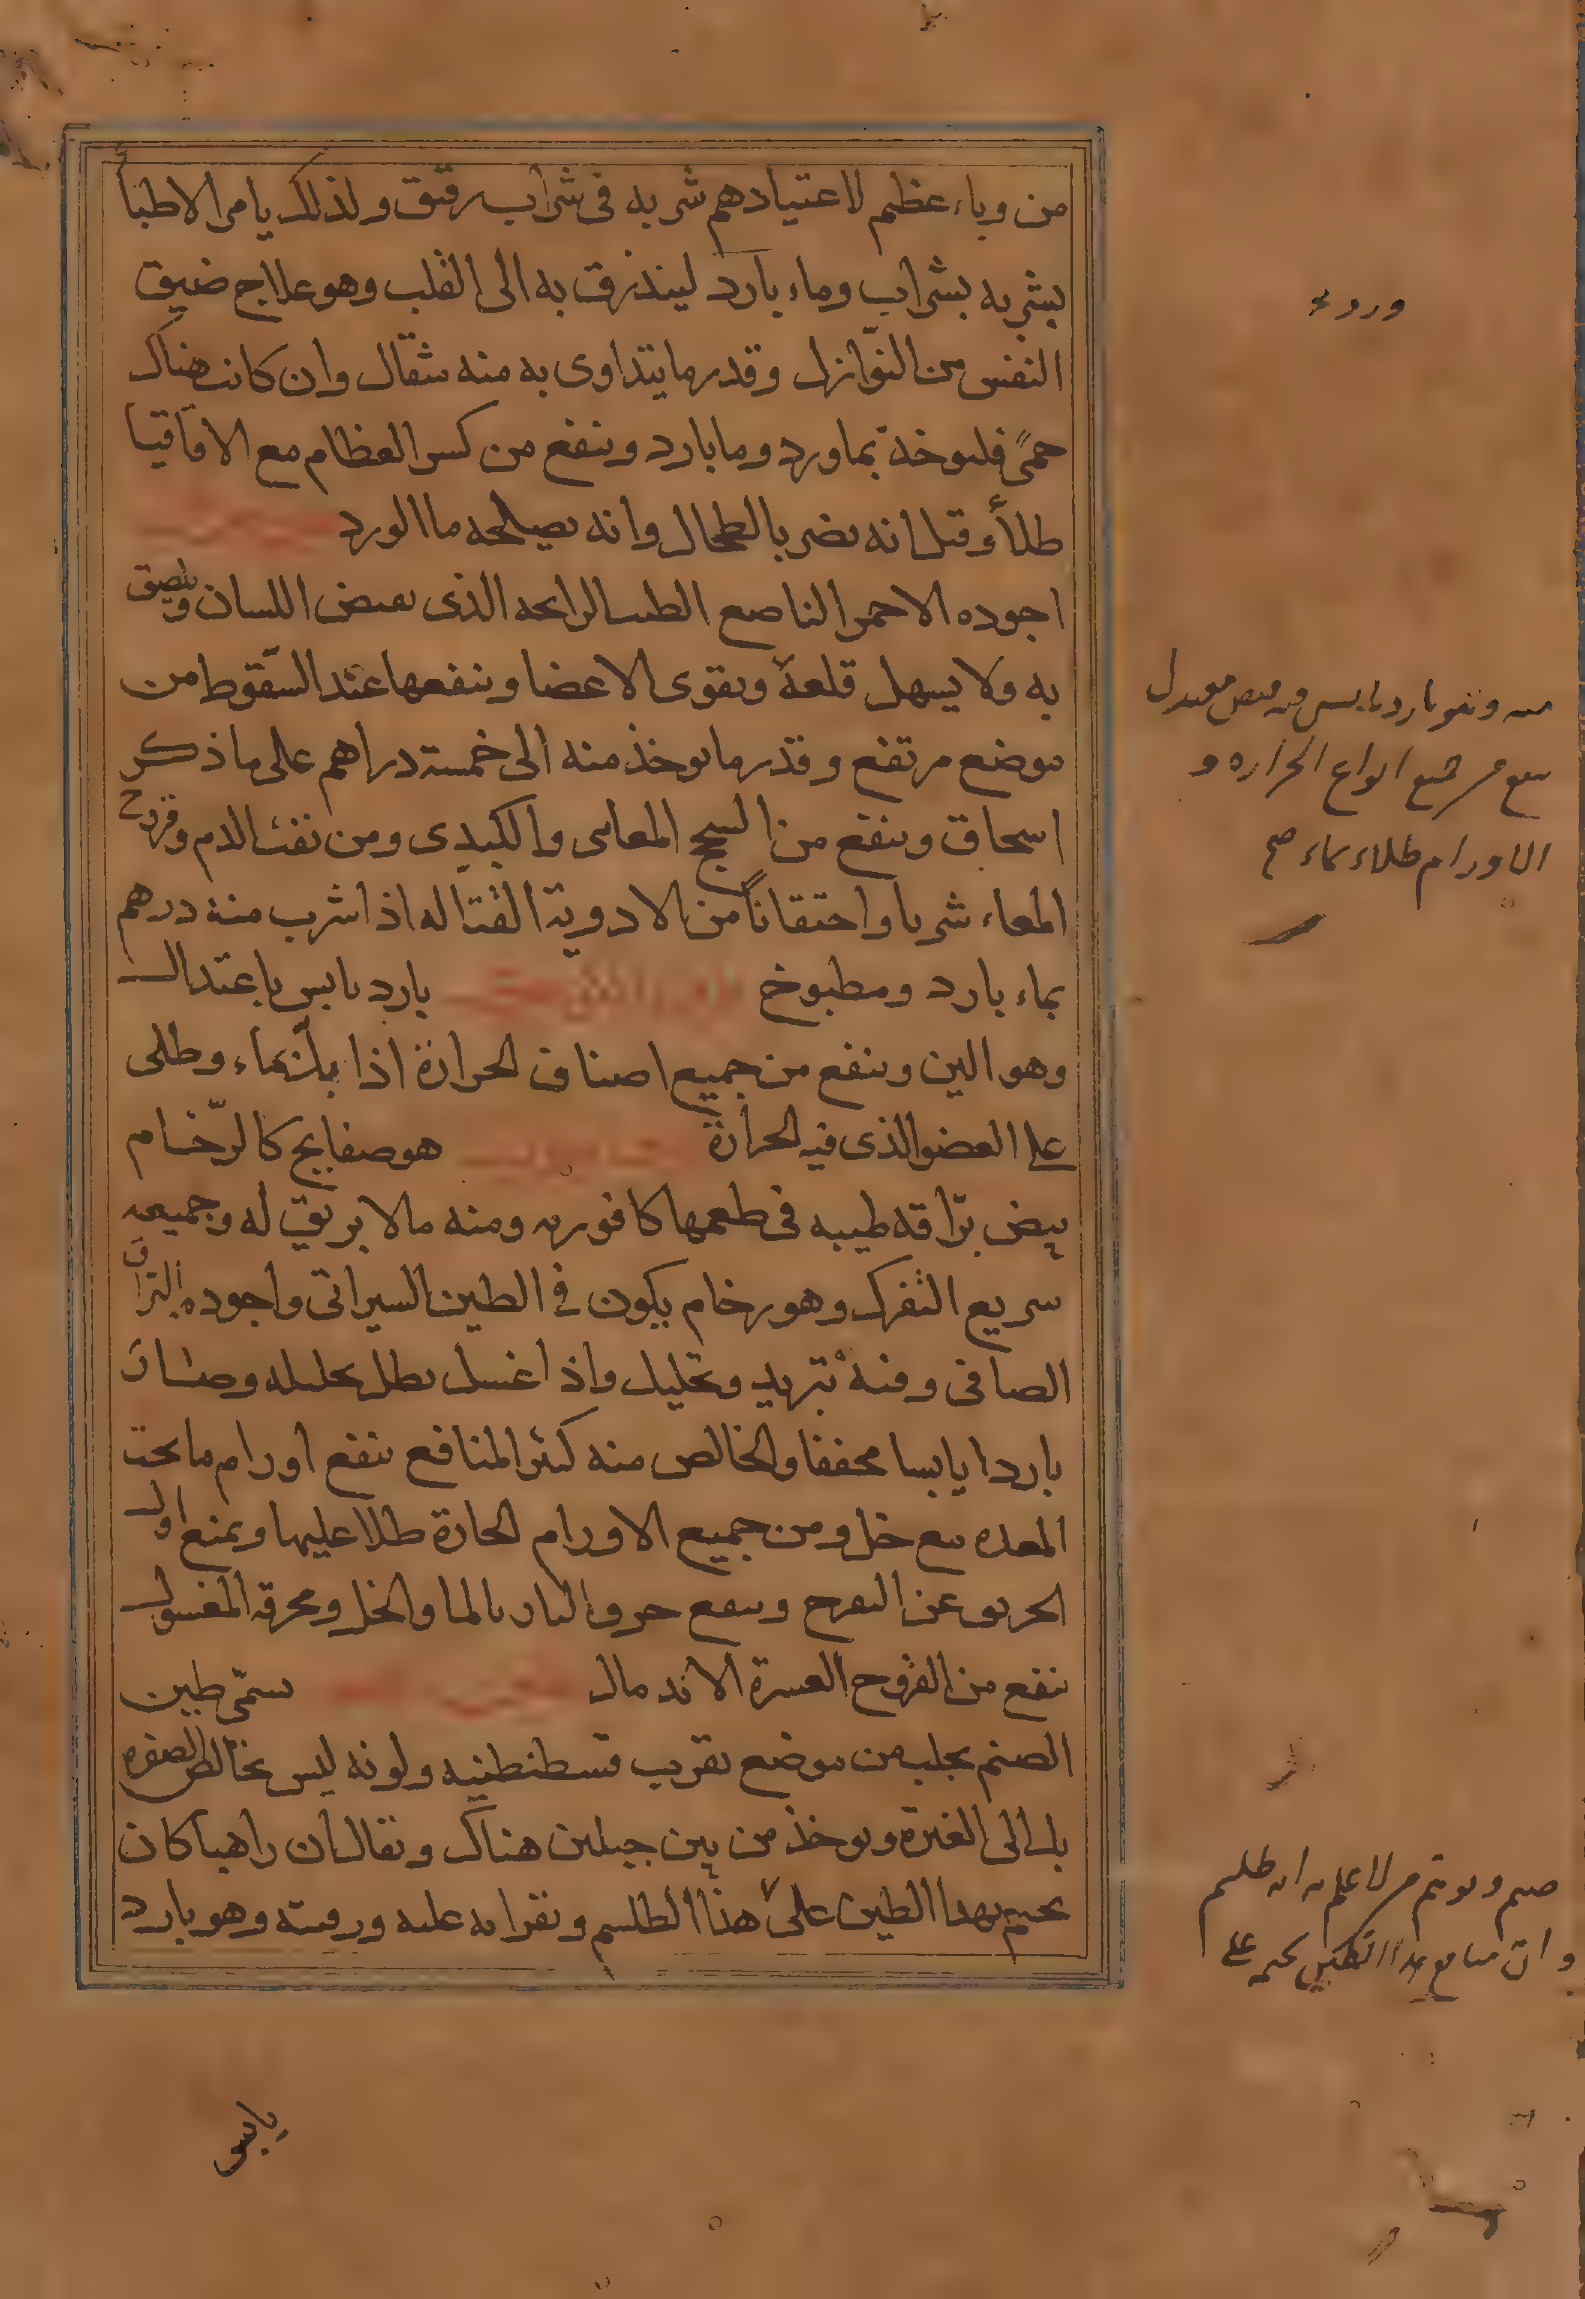 من وباء عظيم لاعتيادهم شربه فى شراب رقيق ولذلك يامر الاطباأ
بشربه بشراب وماء بارد لينذرق به الى القلب وهو علاج ضيق
النفس من النوازل وقدر ما يتداوى به منه مثقال وان كانت هناك
حمى فليوخذ بماورد وما بارد وينفع من كسر العظام مع الاقاقيا
طلأ وقيل انه يضر بالطحال وانه يصلحه ما الورد
اجوده الاحمر الناصع الطيب الرايحه الذى يقبض اللسان ويلصق
به ولا يسهل قلعه ويقوى الاعضا وينفعها عند السقوط من
موضع مرتفع وقدر ما يوخذ منه الى خمسة دراهم على ما ذكر
اسحاق وينفع من السحج المعاى والكبدى ومن نفث الدم وقروح
المعاء شربا واحتقانا من الادوية القتاله اذا شرب منه درهم
بماء بارد ومطبوخ بارد يابس باعتدال
وهو الين وينفع من جميع اصناف الحرارة اذا بل بماء وطلى
على العضو الذى فيه الحرارة هو صفايح كالرخام
بيض براقه طيبه فى طعمها كافوريه ومنه مالا بريق له وجميعه
سريع التفرك وهو رخام يكون فى الطين السيرافى واجوده البراق
الصافى وفيه تبريد وتحليل واذا غسل بطل تحليله وصار
باردا يابسا مجففا والخالص منه كثير المنافع ينفع اورام ما تحت
المعده مع خل ومن جميع الاورام الحارة طلا عليها ويمنع اول
الحريق عن التقرح وينفع حرق النار بالما والخل ومحرقه المغسول
ينفع من القروح العسرة الاندمال يسمى طين
الصنم يجلب من موضع بقرب قسطنطنيه ولونه ليس بخالص الصفره
بل الى الغبرة ويوخذ من بين جبلين هناك ويقال ان راهبا كان
يختم بهذا الطين على هذا الطلسم ويقرا به عليه ورقيته وهو بارد
بارد يابس معتدل
ينفع من جميع انواع الحراره و
الاورام طلاء بماء صح
يابس